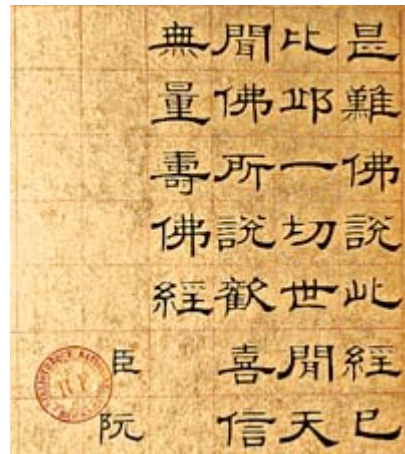 是難佛說此經已
比邱一切世間天
聞佛所說歡喜信
無量壽佛經
臣阮
R F